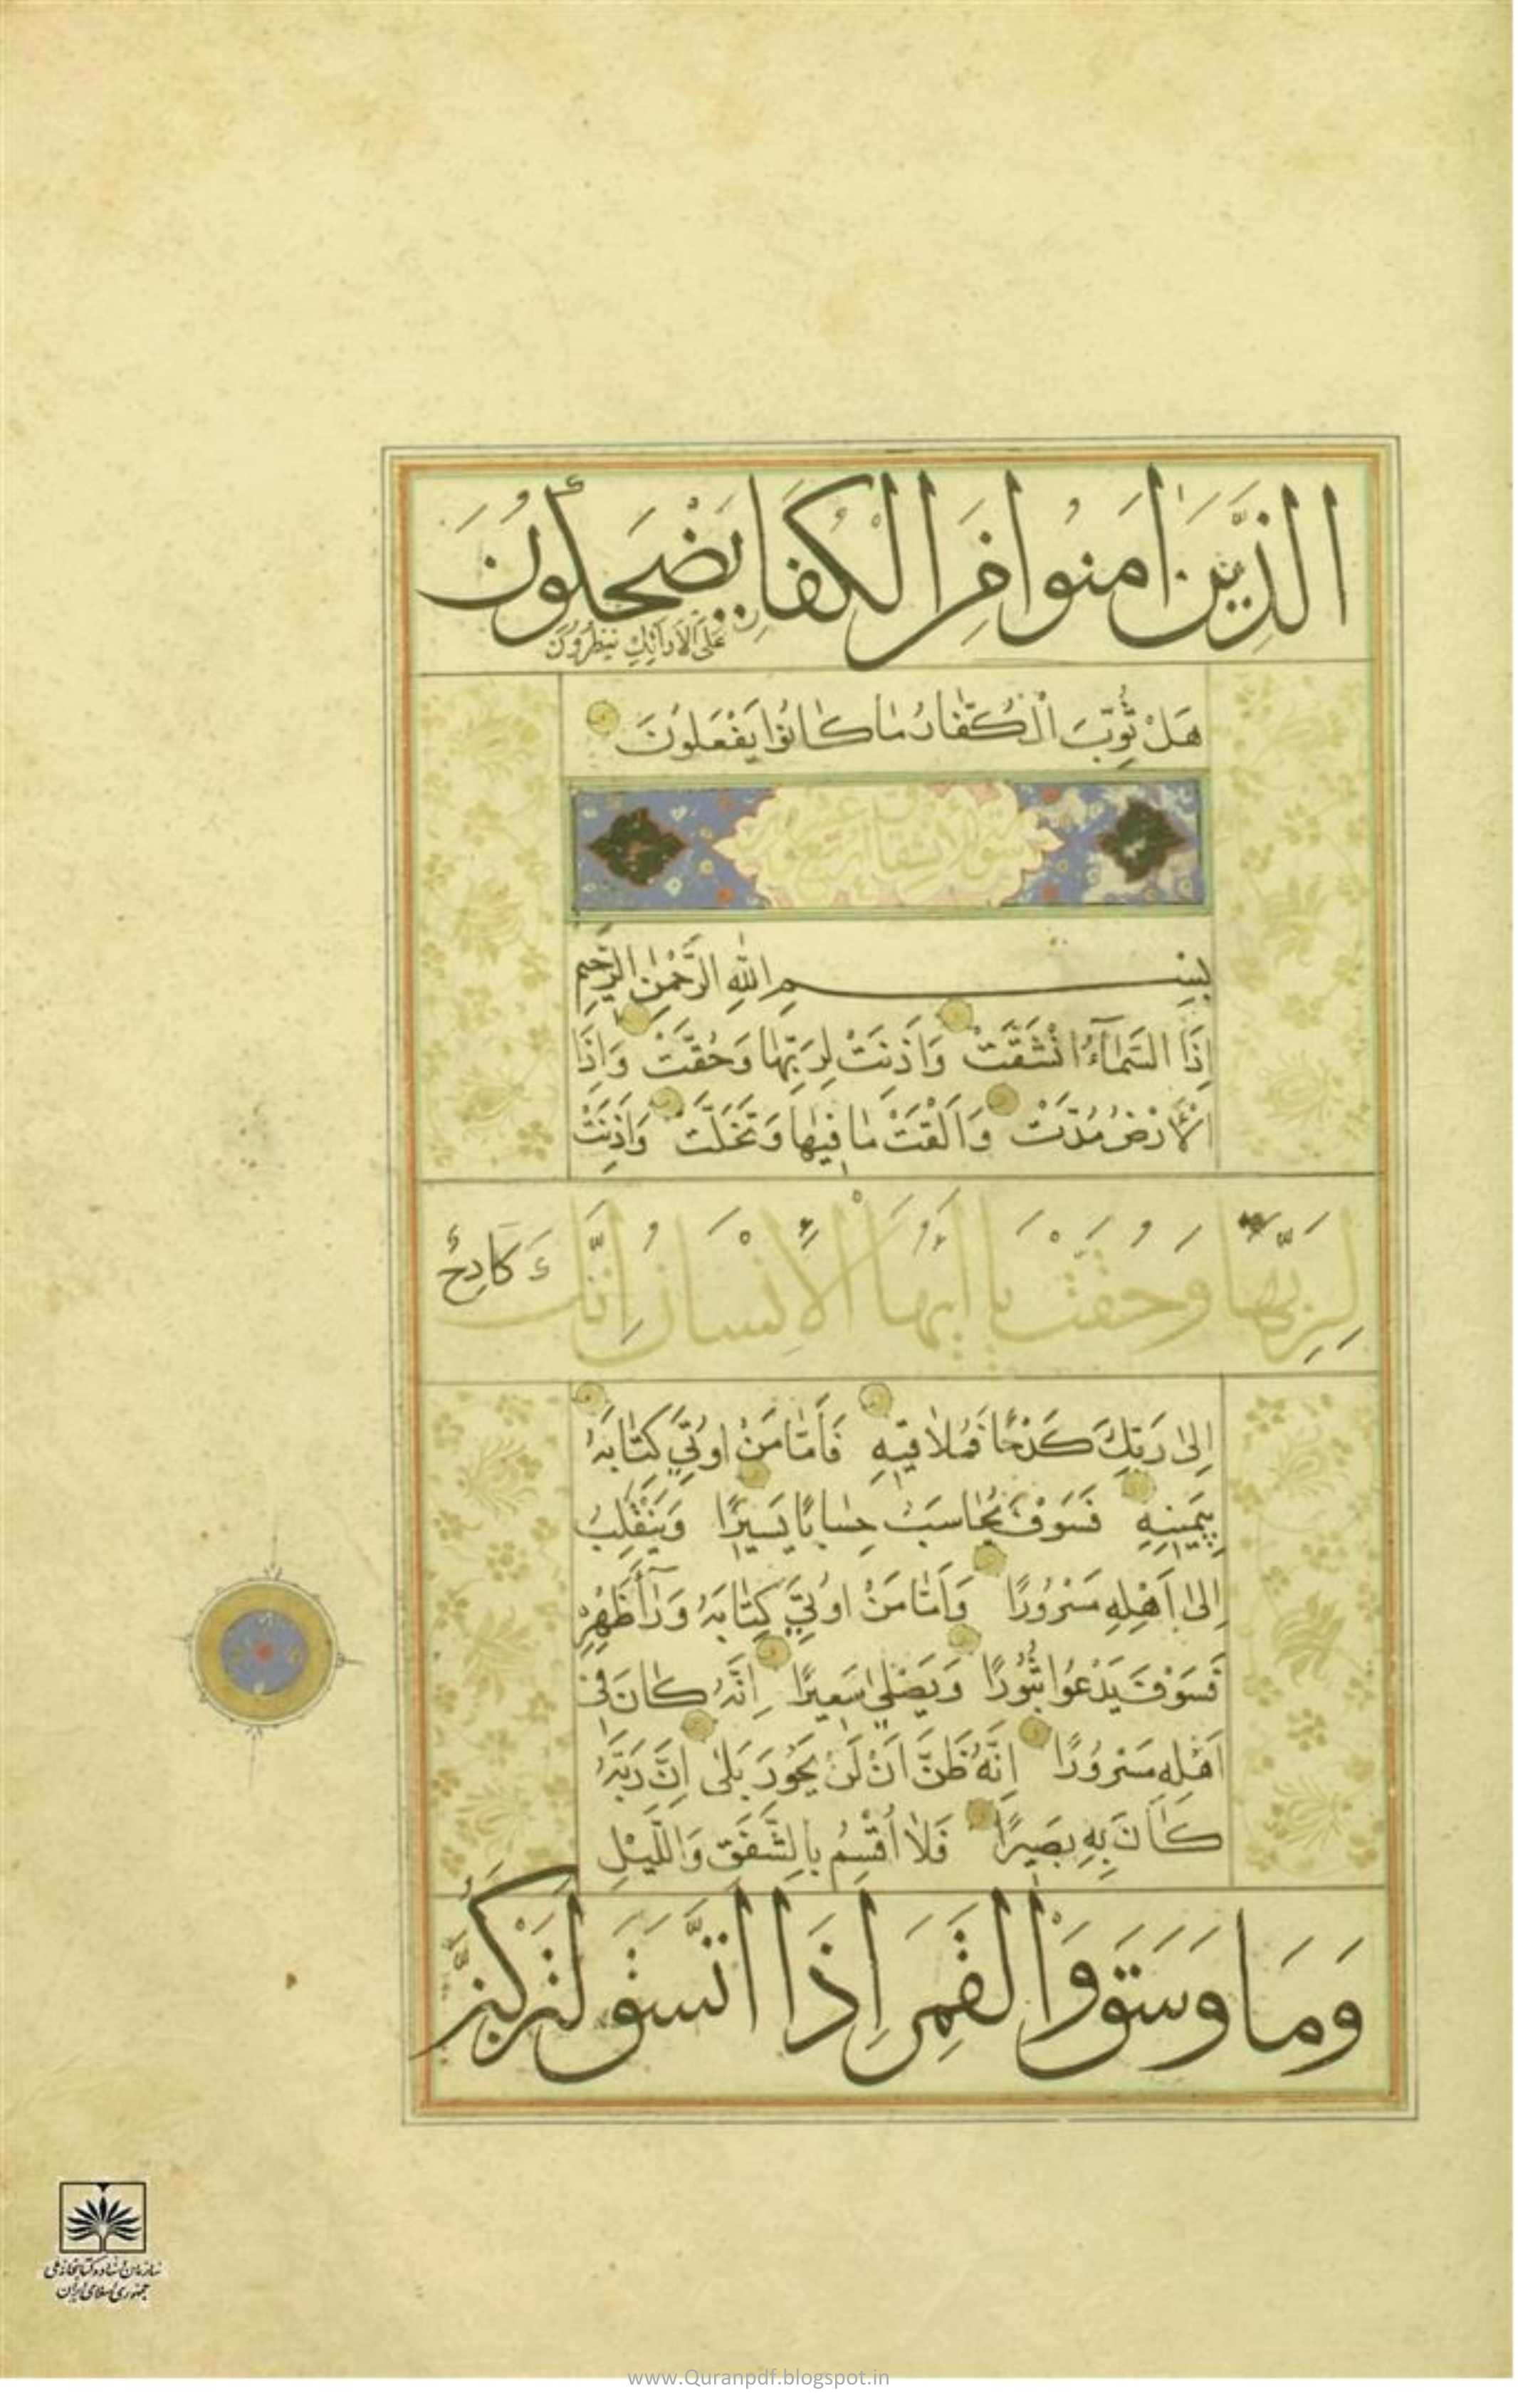 الَّذِينَ اٰمَنُوا مِنَ الْكُفَّارِ يَضْحَكُونَ
عَلَى الْاَرَائِكِ يَنْظُرُونَ
هَلْ ثُوِّبَ الْكُفَّارُ مَا كَانُوا يَفْعَلُونَ
سورة الانشقاق
بِسْمِ اللّٰهِ الرَّحْمٰنِ الرَّحِيمِ
اِذَا السَّمَآءُ انْشَقَّتْ وَاَذِنَتْ لِرَبِّهَا وَحُقَّتْ وَاِذَا
الْاَرْضُ مُدَّتْ وَاَلْقَتْ مَا فِيهَا وَتَخَلَّتْ وَاَذِنَتْ
لِرَبِّهَا وَحُقَّتْ يَا اَيُّهَا الْاِنْسَانُ اِنَّكَ كَادِحٌ
اِلٰى رَبِّكَ كَدْحًا فَمُلَاقِيهِ فَاَمَّا مَنْ اُوتِيَ كِتَابَهُ
بِيَمِينِهِ فَسَوْفَ يُحَاسَبُ حِسَابًا يَسِيرًا وَيَنْقَلِبُ
اِلٰى اَهْلِهِ مَسْرُورًا وَاَمَّا مَنْ اُوتِيَ كِتَابَهُ وَرَآءَ ظَهْرِهِ
فَسَوْفَ يَدْعُوا ثُبُورًا وَيَصْلٰى سَعِيرًا اِنَّهُ كَانَ فِى
اَهْلِهِ مَسْرُورًا اِنَّهُ ظَنَّ اَنْ لَنْ يَحُورَ بَلٰى اِنَّ رَبَّهُ
كَانَ بِهِ بَصِيرًا فَلَا اُقْسِمُ بِالشَّفَقِ وَاللَّيْلِ
وَمَا وَسَقَ وَالْقَمَرِ اِذَا اتَّسَقَ لَتَرْكَبُنَّ
سازمان اسناد و کتابخانه ملی
جمهوری اسلامی ایران
www.Quranpdf.blogspot.in